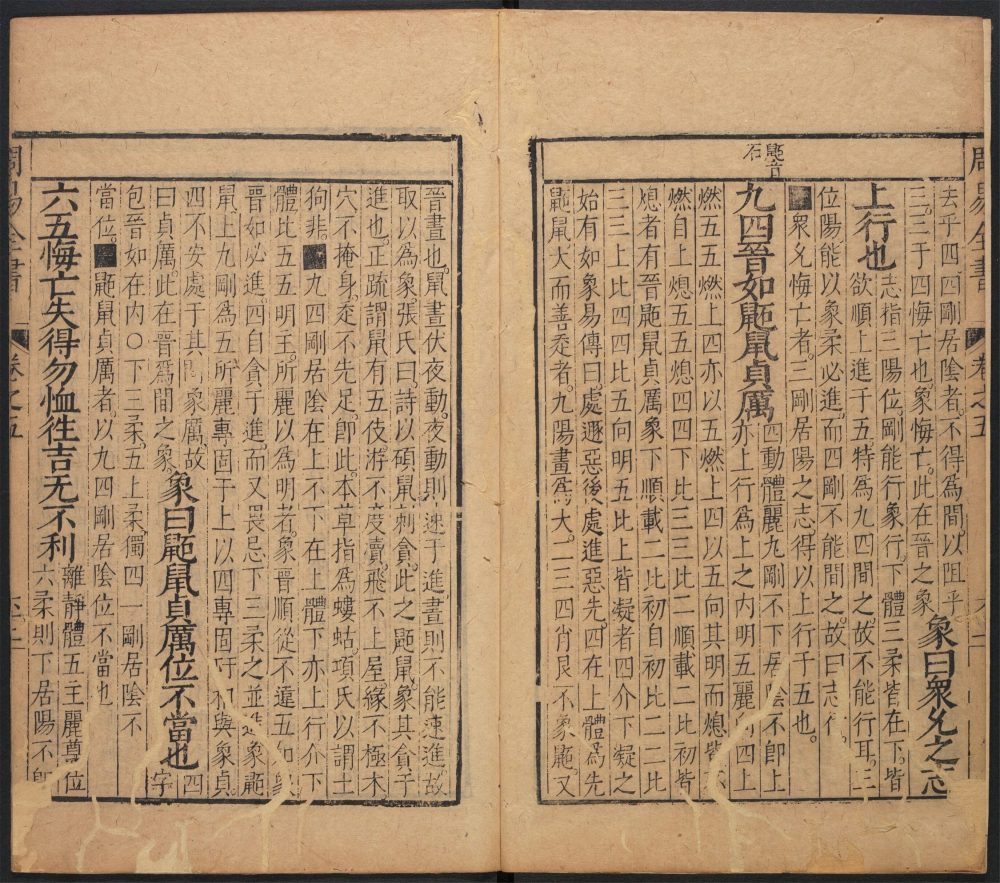 周易全書
卷之五
去乎四四剛居陰者不得爲間以阻乎
三三于四悔亡也象悔亡此在晉之象
象曰衆允之志
上行也
志指三陽位剛能行象行下體三柔皆在下皆
欲順上進于五特爲九四間之故不能行耳三
位陽能以象柔必進而四剛不能間之故曰志行
衆允悔亡者三剛居陽之志得以上行于五也
鼫音
石
九四晉如鼫鼠貞厲
四動體麗九剛不下居陰不卽上
亦上行爲上之内明五麗四上
燃五五燃上四亦以五燃上四以五向其明而熄皆不
燃自上熄五五熄四四下比三三比二順載二比初皆
熄者有晉鼫鼠貞厲象下順載二比初自初比二二比
三三上比四四比五向明五比上皆凝者四介下凝之
始有如象易傳曰處遯惡後處進惡先四在上體爲先
鼫鼠大而善㐬者九陽畫爲大二三四肖艮不象鼫又
晉晝也鼠晝伏夜動夜動則速于進晝則不能速進故
取以爲象張氏曰詩以碩鼠刺貪此之鼫鼠象其貪于
進也正疏謂鼠有五伎游不度瀆飛不上屋緣不極木
穴不掩身走不先足卽此本草指爲螻蛄項氏以謂土
狗非
九四剛居陰在上不下在上體下亦上行介下
體比五五明主所麗以爲明者象晉順從不違五如象
晉如必進四自貪于進而又畏忌下三柔之並進象鼫
鼠上九剛爲五所麗專固于上以四專固與象貞
四不安處于其間象厲故
曰貞厲此在晉爲間之象
象曰鼫鼠貞厲位不當也
四字
包晉如在内○下三柔五上柔獨四一剛居陰不
當位
鼫鼠貞厲者以九四剛居陰位不當也
六五悔亡失得勿恤徃吉无不利
離靜體五主麗尊位
六柔則下居陽不卽
周易全書
卷之五